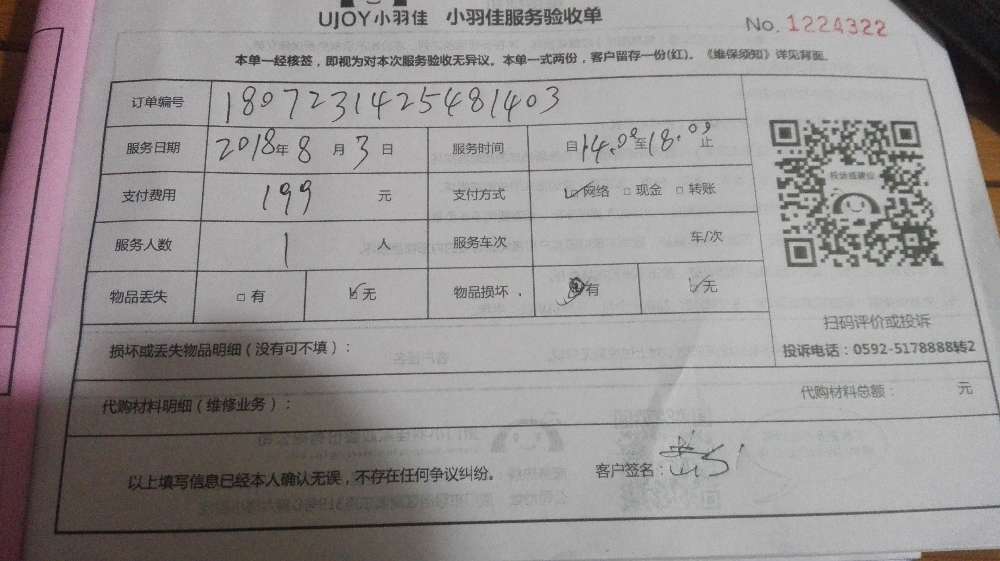 UJOY小羽佳 小羽佳服务验收单
No. 1224322
本单一经核签，即视为对本次服务验收无异议。本单一式两份，客户留存一份(红)。《维保须知》详见背面。
订单编号 180723142548 1403
服务日期 2018年8月3日 服务时间 自14.00至18.00止
支付费用 199 元 支付方式 ☑网络 □现金 □转账
服务人数 1 人 服务车次 车/次
物品丢失 □有 ☑无 物品损坏 有 ☑无
投诉或建议
扫码评价或投诉
投诉电话：0592-5178888转2
损坏或丢失物品明细（没有可不填）：
代购材料明细（维修业务）： 代购材料总额： 元
以上填写信息已经本人确认无误，不存在任何争议纠纷。 客户签名：